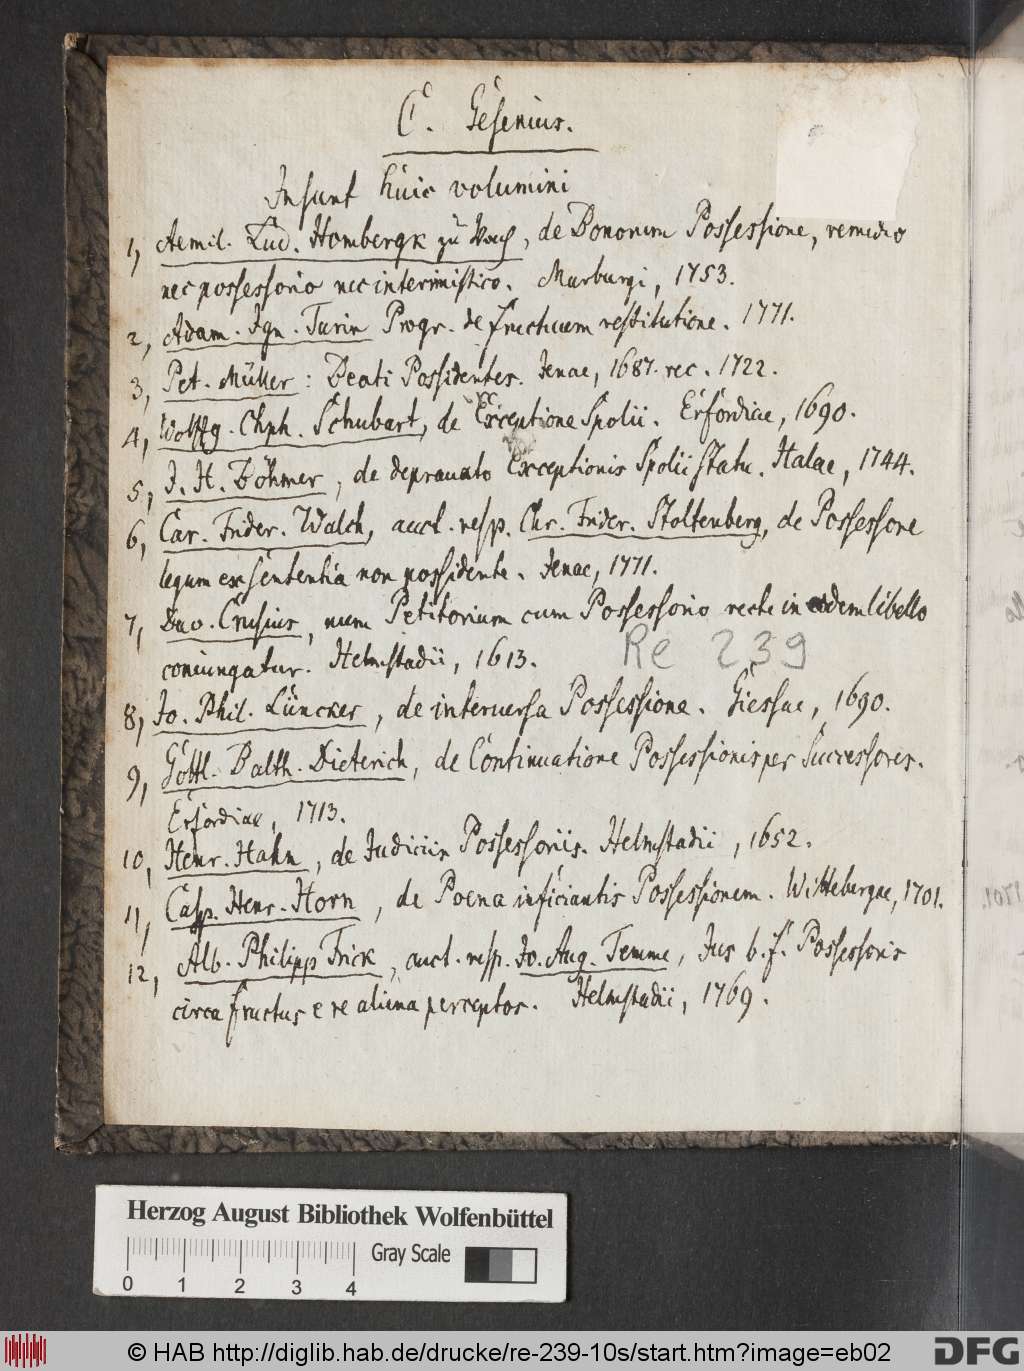 C. Gesenius.
Insunt huic volumini
1, Aemil. Lud. Hombergk zu Vach, de Bonorum Possessione, remedio
nec possessorio nec interimistico. Marburgi, 1753.
2, Adam. Ign. Turin Progr. de fructuum restitutione. 1771.
3, Pet. Müller: Beati Possidentes. Jenae, 1687. rec. 1722.
4, Wolffg. Chph. Schubart, de Exceptione Spolii. Erfordiae, 1690.
5, J. H. Böhmer, de depravato Exceptionis Spolii statu. Halae, 1744.
6, Car. Frider. Walch, auct. resp. Chr. Frider. Stoltenberg, de Possessore
legum ex sententia non possidente. Jenae, 1771.
7, Dav. Crusius, num Petitorium cum Possessorio recte in eodem libello
coniungatur. Helmstadii, 1613.
Re 239
8, Jo. Phil. Lüncker, de interversa Possessione. Giessae, 1690.
9, Gottl. Balth. Dieterich, de Continuatione Possessionis per Successores.
Erfordiae, 1713.
10, Henr. Hahn, de Judiciis Possessoriis. Helmstadii, 1652.
11, Casp. Henr. Horn, de Poena inficiantis Possessionem. Wittebergae, 1701.
12, Alb. Philipp Frick, auct. resp. Jo. Aug. Temme, Jus b. f. Possessoris
circa fructus e re aliena perceptos. Helmstadii, 1769.
Herzog August Bibliothek Wolfenbüttel
Gray Scale
0 1 2 3 4
© HAB http://diglib.hab.de/drucke/re-239-10s/start.htm?image=eb02
DFG